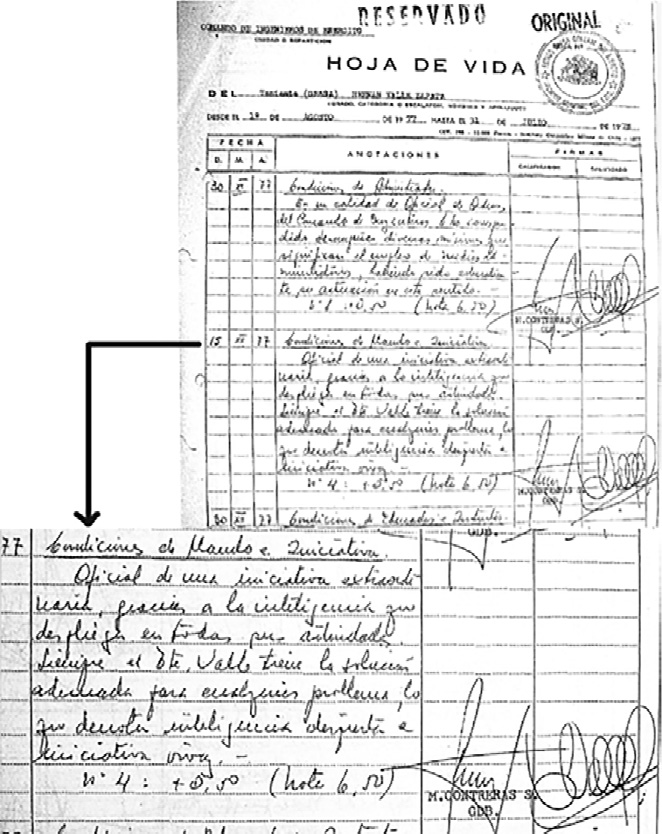 RESERVADO
ORIGINAL
COMANDO DE INGENIEROS DE EJERCITO
UNIDAD O REPARTICION
HOJA DE VIDA
DEL Teniente HERNAN VALLE ZAPATA
GRADO, CATEGORIA O ESCALAFON, NOMBRES Y APELLIDOS
DESDE EL 1º DE AGOSTO DE 1977 HASTA EL 31 DE JULIO DE 1978
FECHA ANOTACIONES FIRMAS
D. M. A. CALIFICADOR CALIFICADO
30 XI 77 Condiciones de Administrador.
En su calidad de Oficial de Ordenes
del Comando de Ingenieros le ha correspon-
dido desempeñar diversas misiones que
significan el empleo de medios ad-
ministrativos, habiendo sido
su actuación en este sentido.-
(nota 6,50)
M.CONTRERAS S.
GDB.
15 XII 77 Condiciones de Mando e Iniciativa
Oficial de una iniciativa extraordi
naria, gracias a la inteligencia que
despliega en todas sus actividades.
Siempre el Tte. Valle tiene la solución
adecuada para cualquier problema, lo
que denota inteligencia despierta e
iniciativa vivaz.-
Nº 4: +0,50 (nota 6,50)
M.CONTRERAS S.
GDB.
30 XII 77 Condiciones de Educador e Instructor
GDB.
77 Condiciones de Mando e Iniciativa.
Oficial de una iniciativa extraordi
naria, gracias a la inteligencia que
despliega en todas sus actividades.
Siempre el Tte. Valle tiene la solución
adecuada para cualquier problema, lo
que denota inteligencia despierta e
iniciativa vivaz.-
Nº 4: +0,50 (nota 6,50)
M.CONTRERAS S.
GDB.